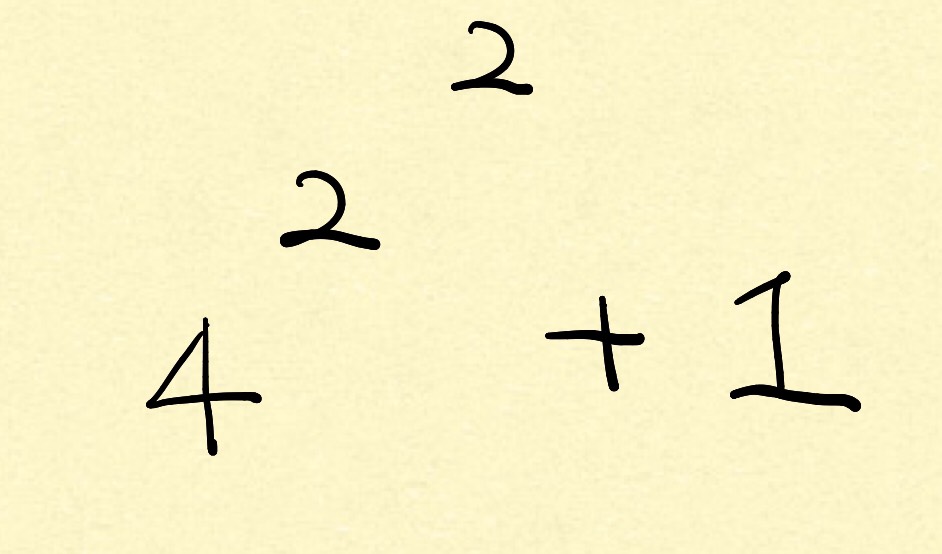 4^{2^{2}} + 1